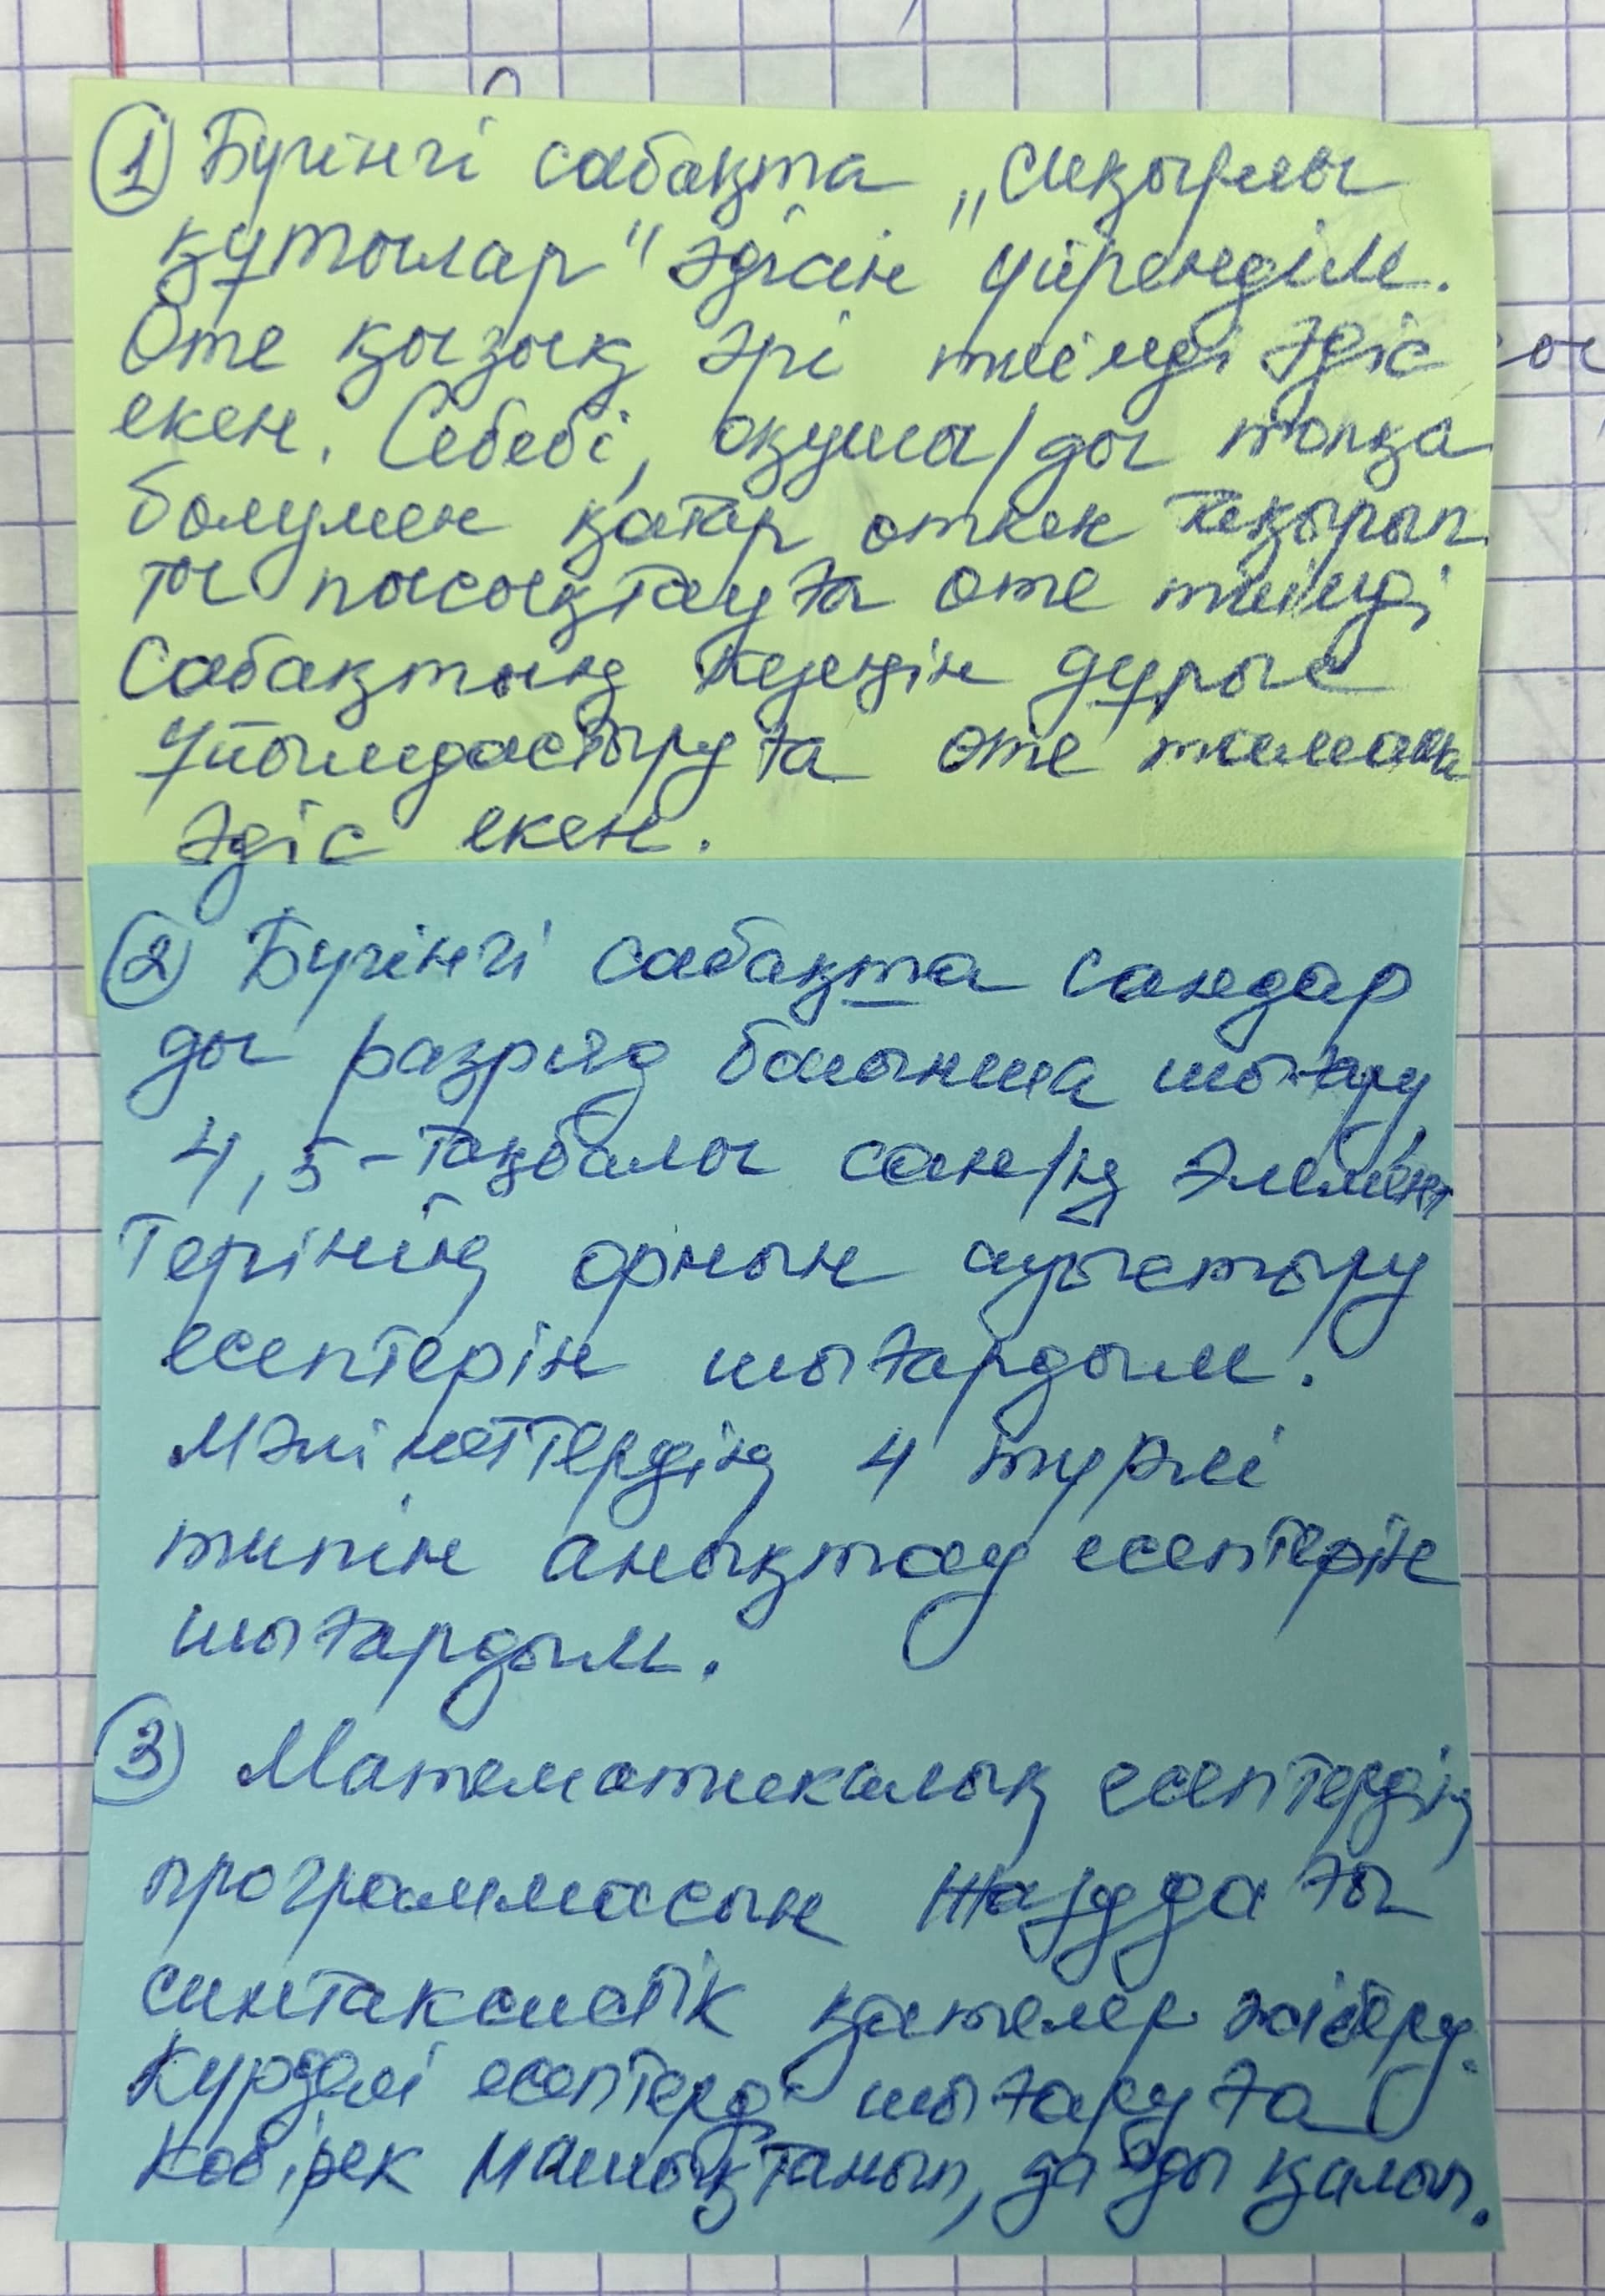 ① Бүгінгі сабақта „сиқырлы
құтылар" әдісін үйрендім.
Өте қызық әрі тиімді әдіс
екен. Себебі, оқушы/ды топқа
бөлумен қатар өткен тақырып
ты пысықтауға өте тиімді
Сабақтың кезеңін дұрыс
ұйымдастыруға өте тамаша
әдіс екен.
② Бүгінгі сабақта сандар
ды разряд бойынша шығару
4,5-таңбалы сан/ң элемент
терінің орнын ауыстыру
есептерін шығардым.
Мәліметтердің 4 түрлі
типін анықтау есептерін
шығардым.
③ Математикалық есептердің
программасын жазудағы
синтаксистік қателер жіберу.
Күрделі есептерді шығаруға
көбірек машықтанып, дағды қалып.